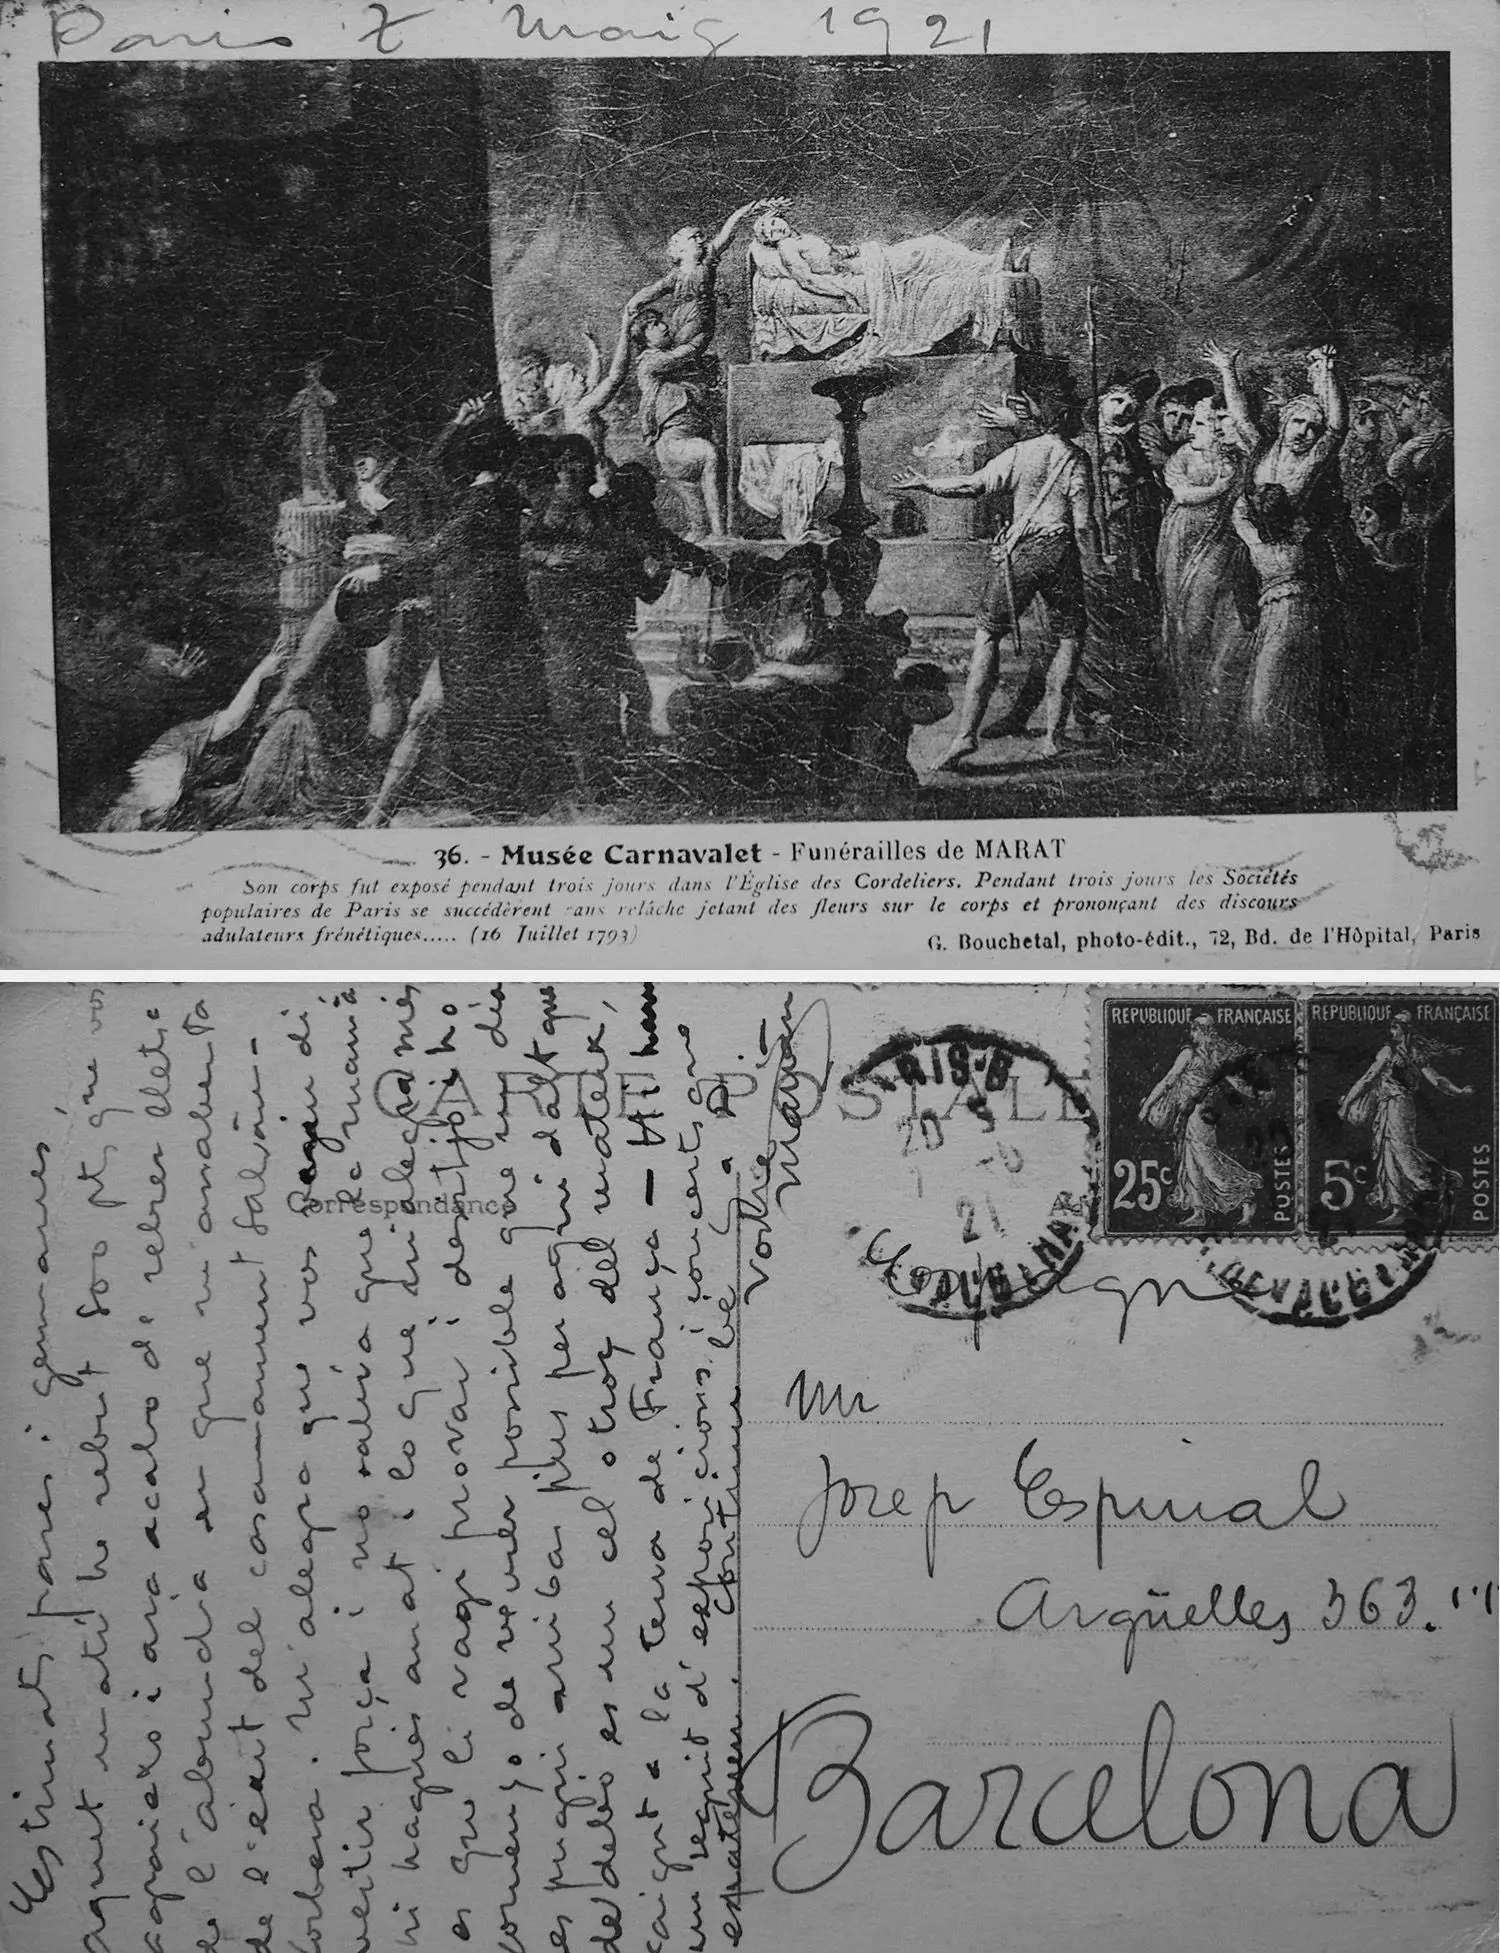 Paris 7 maig 1921
36. - Musée Carnavalet - Funérailles de MARAT
Son corps fut exposé pendant trois jours dans l'Église des Cordeliers. Pendant trois jours les Sociétés
populaires de Paris se succédèrent sans relâche jetant des fleurs sur le corps et prononçant des discours
adulateurs frénétiques..... (16 Juillet 1793)
G. Bouchetal, photo-édit., 72, Bd. de l'Hôpital, Paris
CARTE POSTALE
Correspondance
Estimats pares i germanes,
aquest matí he rebut 500 pts que vos
agraeixo i ara acabo de rebre lletra
de l'abundia en que m'assabenta
de l'exit del casament Galvan-
Corbera. M'alegra que vos
vertir força i no sabia que la mamà
hi hagués anat i lo que m'alegra més
es que li vagi provar i desitjo ho
començo de veurer possible que un dia
es pugui arribar fins per aquí dalt que
de debò es un cel o tros del mateix,
caigut a la terra de França -
un seguit d'exposicions i concerts que
continu
Vostre
REPUBLIQUE FRANÇAISE
25c
POSTES
REPUBLIQUE FRANÇAISE
5c
POSTES
PARIS-8
21
Espagne
Mr
Josep Espinal
Argüelles 363.
Barcelona